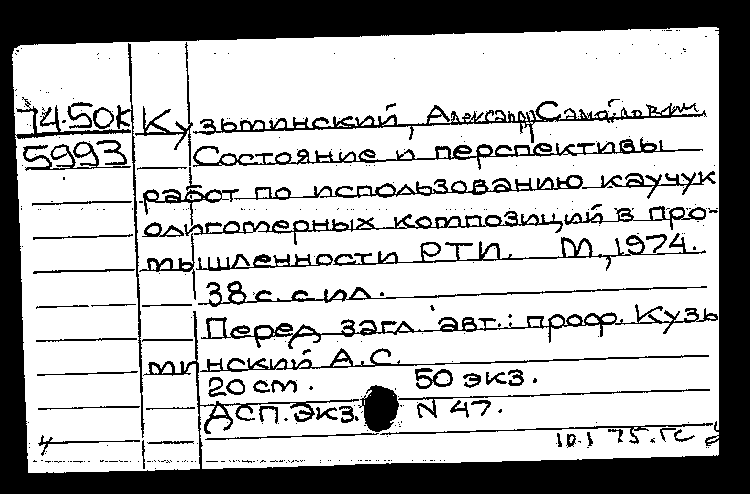 74.50К Кузьминский, Александр Самойлович
5993 Состояние и перспективы
работ по использованию каучук
олигомерных композиций в про-
мышленности РТИ. М., 1974.
38 с. с ил.
Перед загл. авт.: проф. Кузь
минский А.С.
20 см. 50 экз.
ДСП. Экз. N 47.